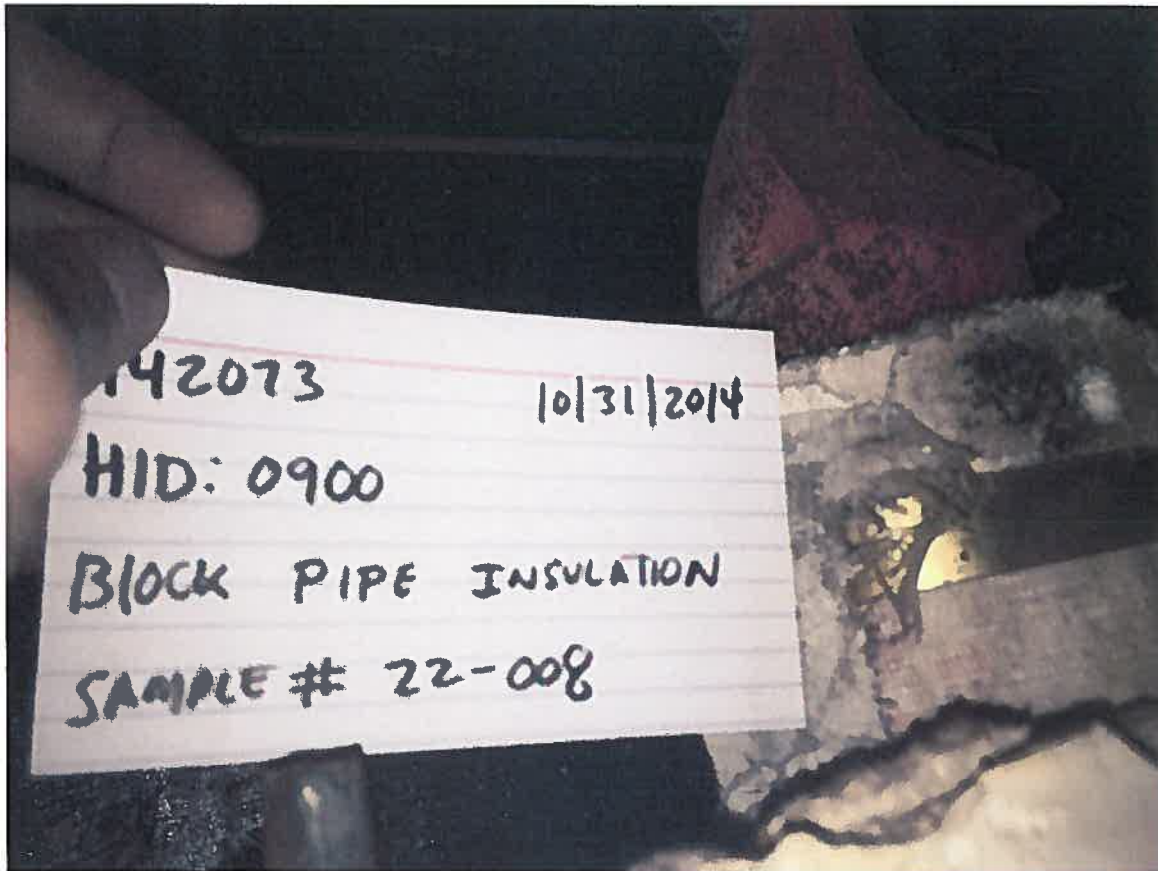 42073
10/31/2014
HID: 0900
Block PIPE INSULATION
SAMPLE # 22-008